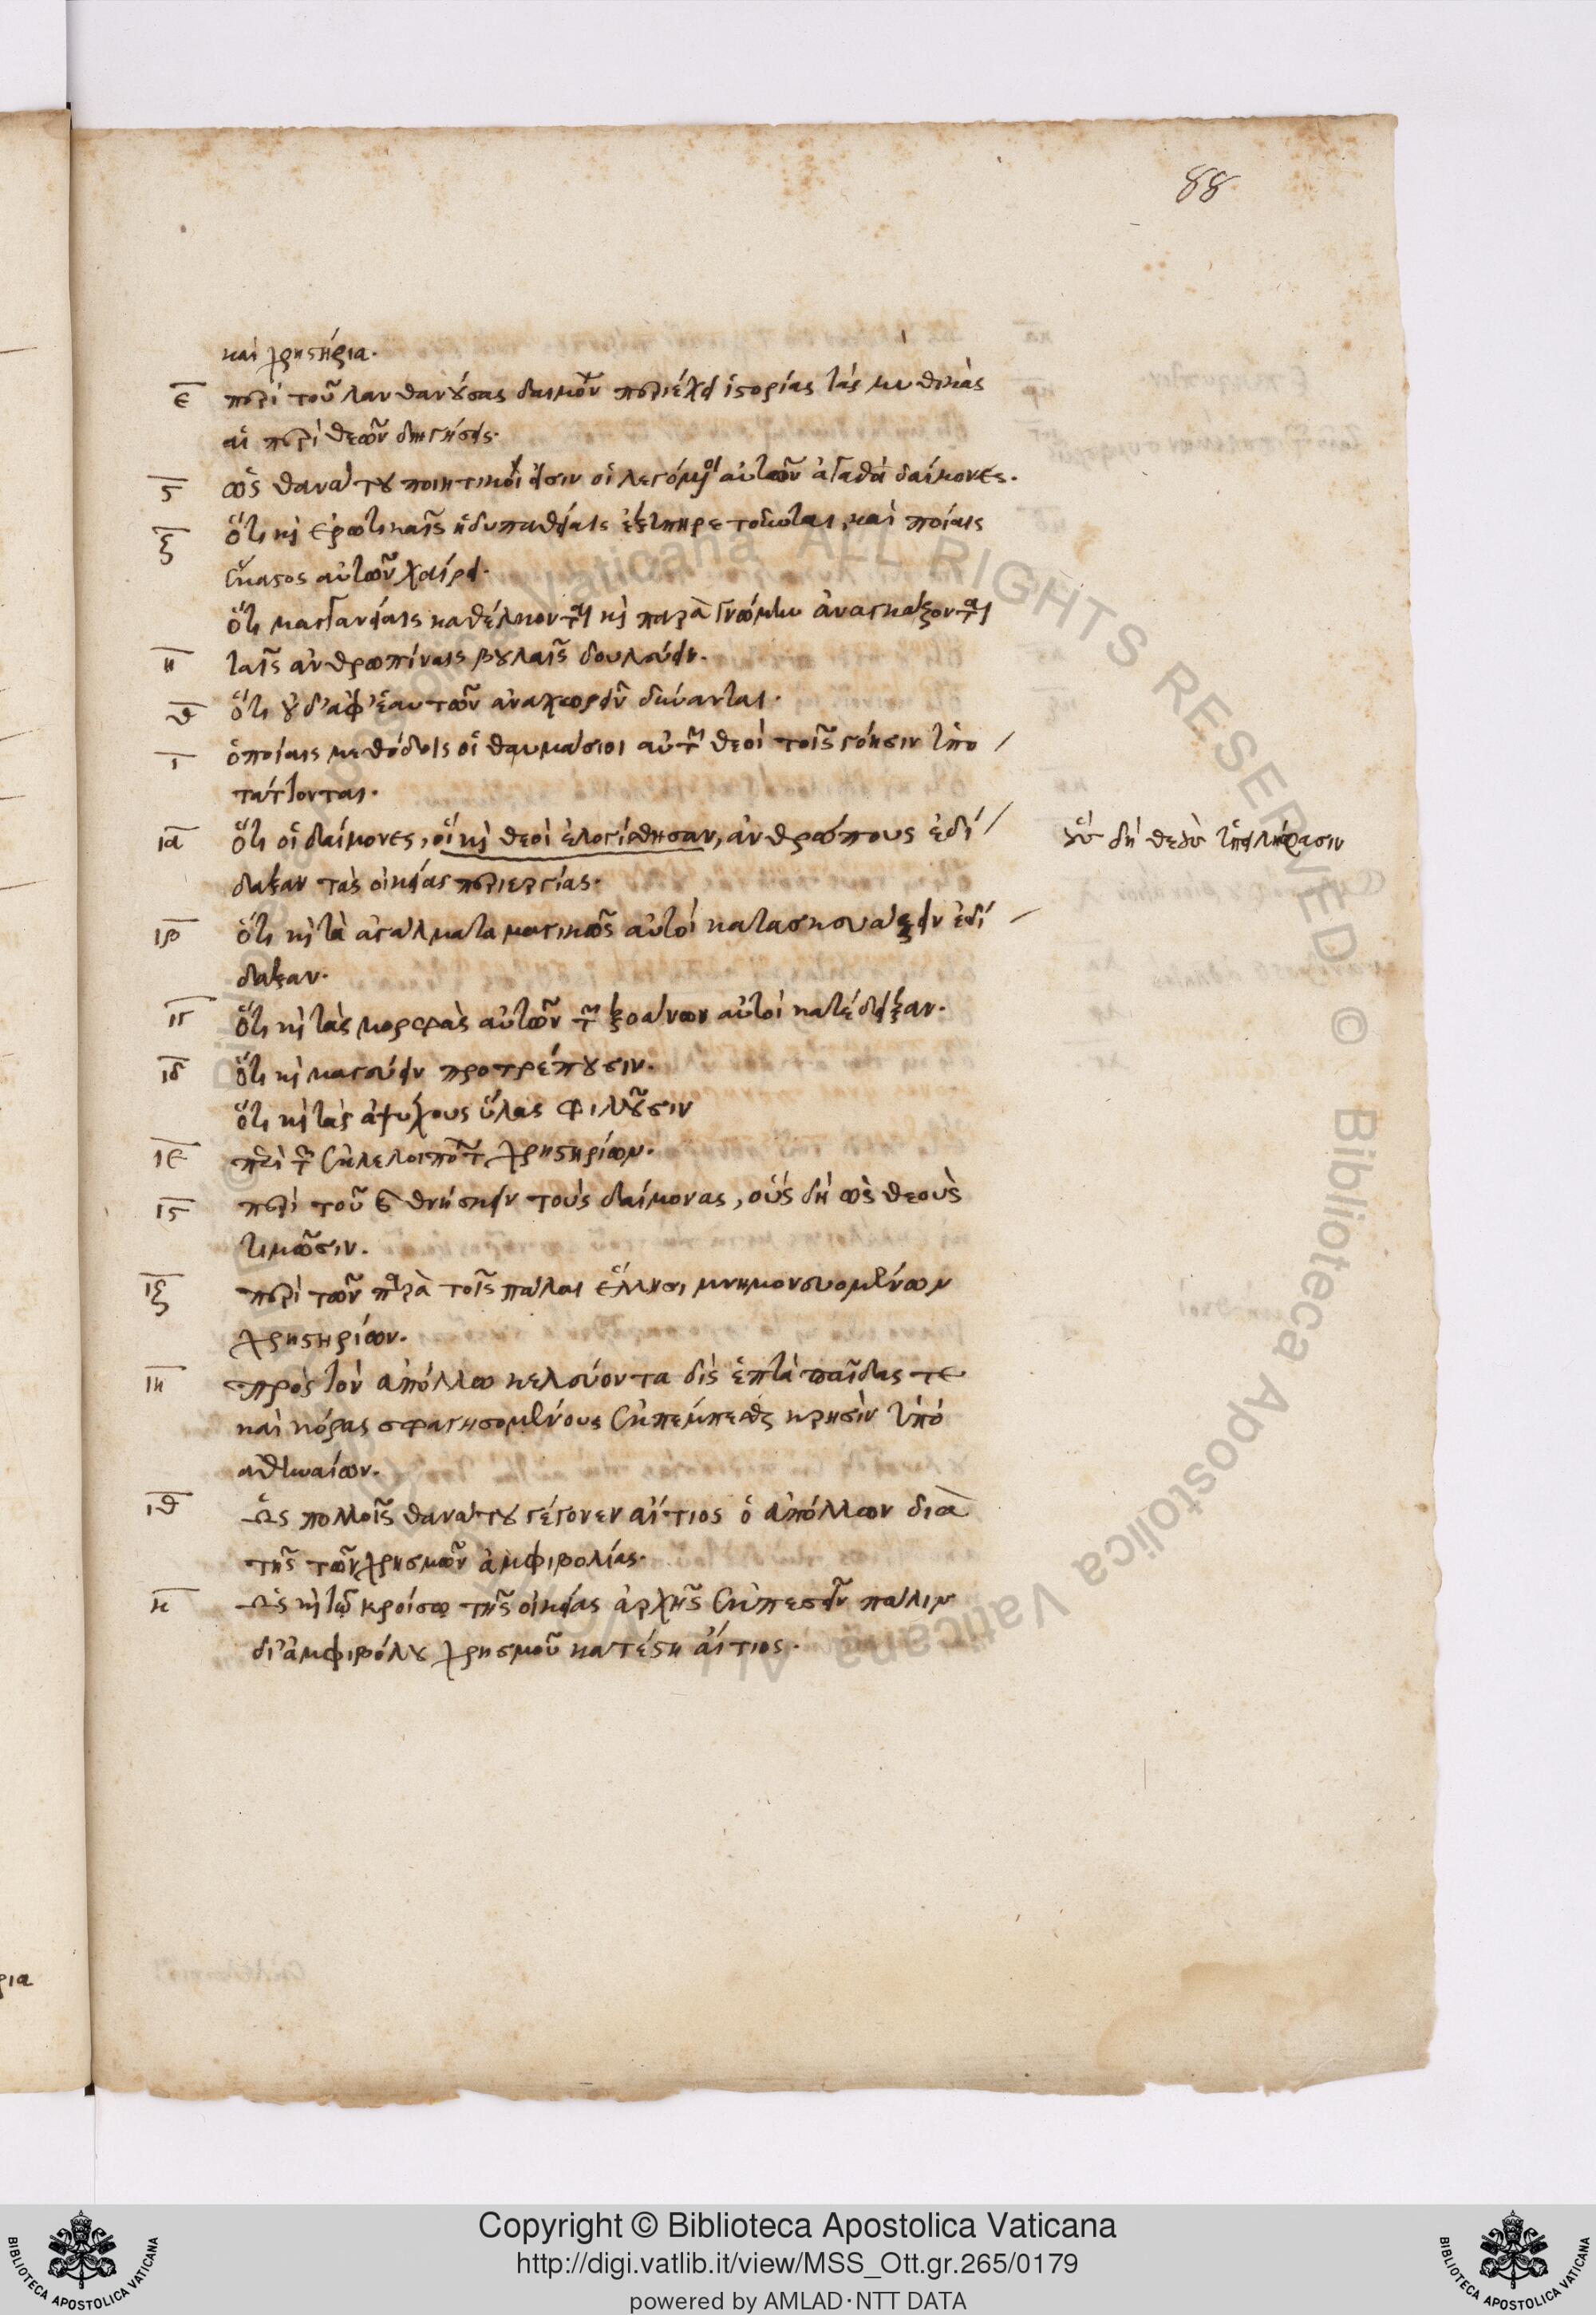 88
καὶ χρηστήρια.
ε περὶ τοῦ λανθανούσας δαιμόνων περιέχει ἱστορίας τὰς μυθικὰς
αἱ περὶ θεῶν διηγήσεις.
ς ὡς θανάτου ποιητικοί εἰσιν οἱ λεγόμενοι αὐτῶν ἀγαθοὶ δαίμονες.
ζ ὅτι καὶ ἐρωτικαῖς ἡδυπαθείαις ἐξυπηρετοῦνται, καὶ ποίαις
ἕκαστος αὐτῶν χαίρει.
ὅτι μαγγανείαις καθέλκονται καὶ παρὰ γνώμην ἀναγκάζονται
η ταῖς ἀνθρωπίναις βουλαῖς δουλεύειν.
θ ὅτι οὐδ' ἀφ' ἑαυτῶν ἀναχωρεῖν δύνανται.
ι ὁποίαις μεθόδοις οἱ θαυμάσιοι αὐτῶν θεοὶ τοῖς γόησιν ὑπο /
τάττονται.
ια ὅτι οἱ δαίμονες, οἳ καὶ θεοὶ ἐλογίσθησαν, ἀνθρώπους ἐδί /
οὓς δὴ θεοὺς ὑπειλήφασιν
δαξαν τὰς οἰκείας περιεργίας.
ιβ ὅτι καὶ τὰ ἀγάλματα μαγικῶς αὐτοὶ κατασκευάζειν ἐδί /
δαξαν.
ιγ ὅτι καὶ τὰς μορφὰς αὐτῶν τῶν ξοάνων αὐτοὶ κατέδειξαν.
ιδ ὅτι καὶ μαγεύειν προτρέπουσιν.
ὅτι καὶ τὰς ἀψύχους ὕλας φιλοῦσιν
ιε περὶ τῶν ἐκλελοιπότων χρηστηρίων.
ις περὶ τοῦ θνήσκειν τοὺς δαίμονας, οὓς δὴ ὡς θεοὺς
τιμῶσιν.
ιζ περὶ τῶν παρὰ τοῖς πάλαι ἕλλησι μνημονευομένων
χρηστηρίων.
ιη πρὸς τὸν ἀπόλλω κελεύοντα δὶς ἑπτὰ παῖδας τε
καὶ κόρας σφαγησομένους ἐκπέμπεσθαι κρησὶν ὑπὸ
ἀθηναίων.
ιθ Ὡς πολλοῖς θανάτου γέγονεν αἴτιος ὁ ἀπόλλων διὰ
τῆς τῶν χρησμῶν ἀμφιβολίας.
κ Ὡς καὶ τῷ κροίσῳ τῆς οἰκείας ἀρχῆς ἐκπεσεῖν πάλιν
δι' ἀμφιβόλου χρησμοῦ κατέστη αἴτιος.
ρια
Copyright © Biblioteca Apostolica Vaticana
http://digi.vatlib.it/view/MSS_Ott.gr.265/0179
powered by AMLAD·NTT DATA